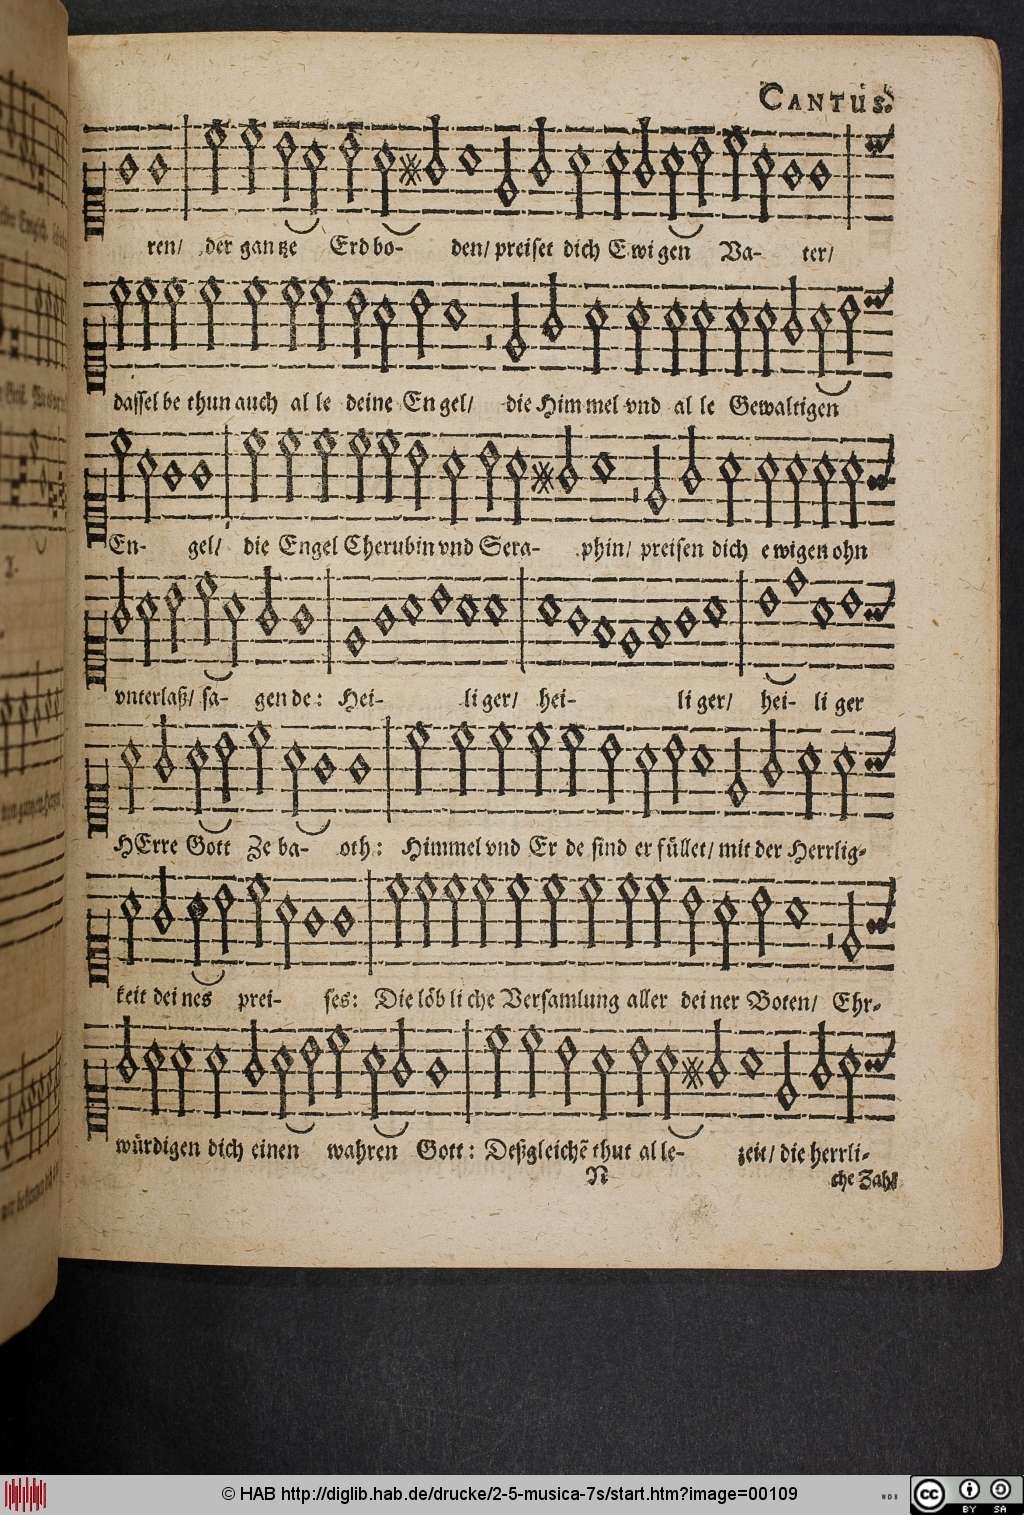 CANTUS.
ren/ der gan tze Erd bo- den/ preiset dich E wi gen Va- ter/
dassel be thun auch al le deine En gel/ die Him mel vnd al le Gewaltigen
En- gel/ die Engel Cherubin vnd Sera- phin/ preisen dich e wigen ohn
vnterlaß/ sa- gen de: Hei- li ger/ hei- li ger/ hei- li ger
HErre Gott Ze ba- oth: Himmel vnd Er de sind er füllet/ mit der Herrlig-
keit dei nes prei- ses: Die löb li che Versamlung aller dei ner Boten/ Ehr-
würdigen dich einen wahren Gott: Deßgleichē thut al le- zeit/ die herrli-
N che Zahl
© HAB http://diglib.hab.de/drucke/2-5-musica-7s/start.htm?image=00109
WDB
cc BY SA